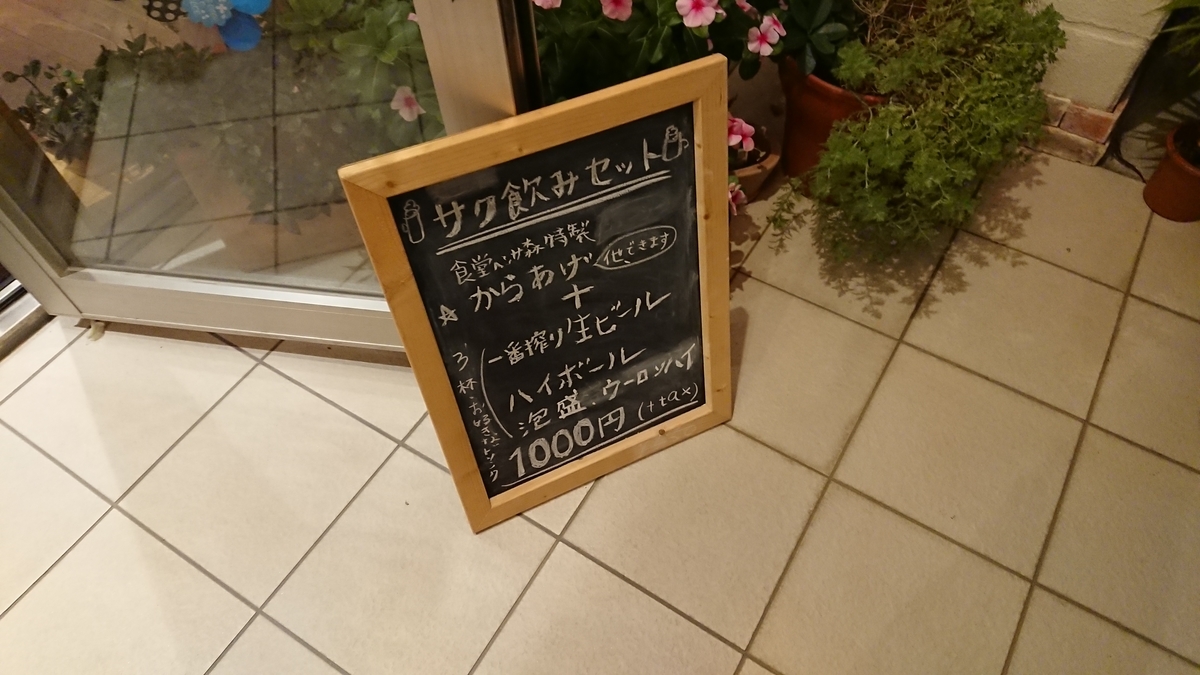 サク飲みセット
食堂ベンガ森特製
からあげ
他できます
+
一番搾り生ビール
ハイボール
泡盛.ウーロンハイ
3杯、お好きなドリンク
1000円(+tax)